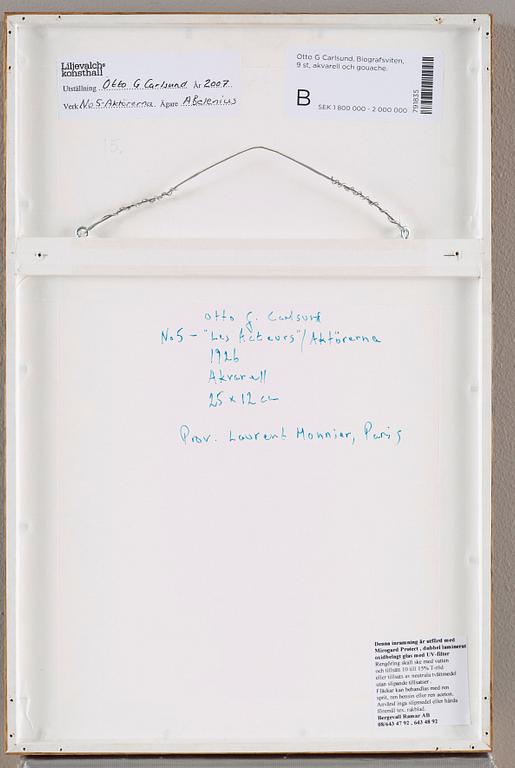 Liljevalchs
konsthall
Utställning Otto G Carlsund År 2007
Verk No 5 Aktörerna Ägare Abelenius
Otto G Carlsund, Biografsviten,
9 st, akvarell och gouache.
B SEK 1 800 000 - 2 000 000
791835
15.
Otto G. Carlsund
No 5 - "Les Acteurs" / Aktörerna
1926
Akvarell
25 x 12 cm
Prov. Laurent Monnier, Paris
Denna inramning är utförd med
Mirogard Protect , dubbel laminerat
oxidbelagt glas med UV-filter
Rengöring skall ske med vatten
och tillsätt 10 till 15% T-röd
eller tillsats av neutrala tvättmedel
utan slipande tillsatser .
Fläckar kan behandlas med ren
sprit, ren bensin eller ren aceton.
Använd inga slipmedel eller hårda
föremål tex. rakblad.
Bergsvall Ramar AB
08/643 47 92 , 643 48 92